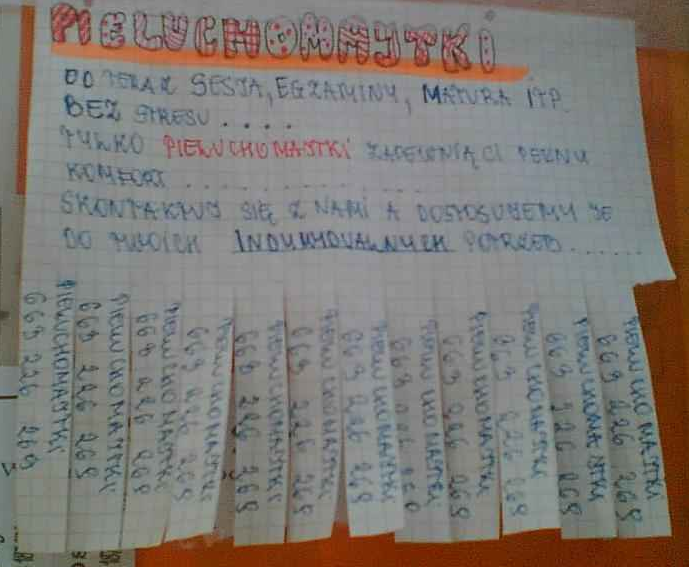 PIELUCHOMAJTKI
OD TERAZ SESJA, EGZAMINY, MATURA ITP.
BEZ STRESU....
TYLKO PIELUCHOMAJTKI ZAPEWNIĄ CI PEŁNY
KOMFORT..............
SKONTAKTUJ SIĘ Z NAMI A DOSTOSUJEMY JE
DO TWOICH INDYWIDUALNYCH POTRZEB......
PIELUCHOMAJTKI
669 226 269
PIELUCHOMAJTKI
669 226 269
PIELUCHOMAJTKI
669 226 269
PIELUCHOMAJTKI
669 226 269
PIELUCHOMAJTKI
669 226 269
PIELUCHOMAJTKI
669 226 269
PIELUCHOMAJTKI
669 226 269
PIELUCHOMAJTKI
669 226 269
PIELUCHOMAJTKI
669 226 269
PIELUCHOMAJTKI
669 226 269
PIELUCHOMAJTKI
669 226 269
PIELUCHOMAJTKI
669 226 269